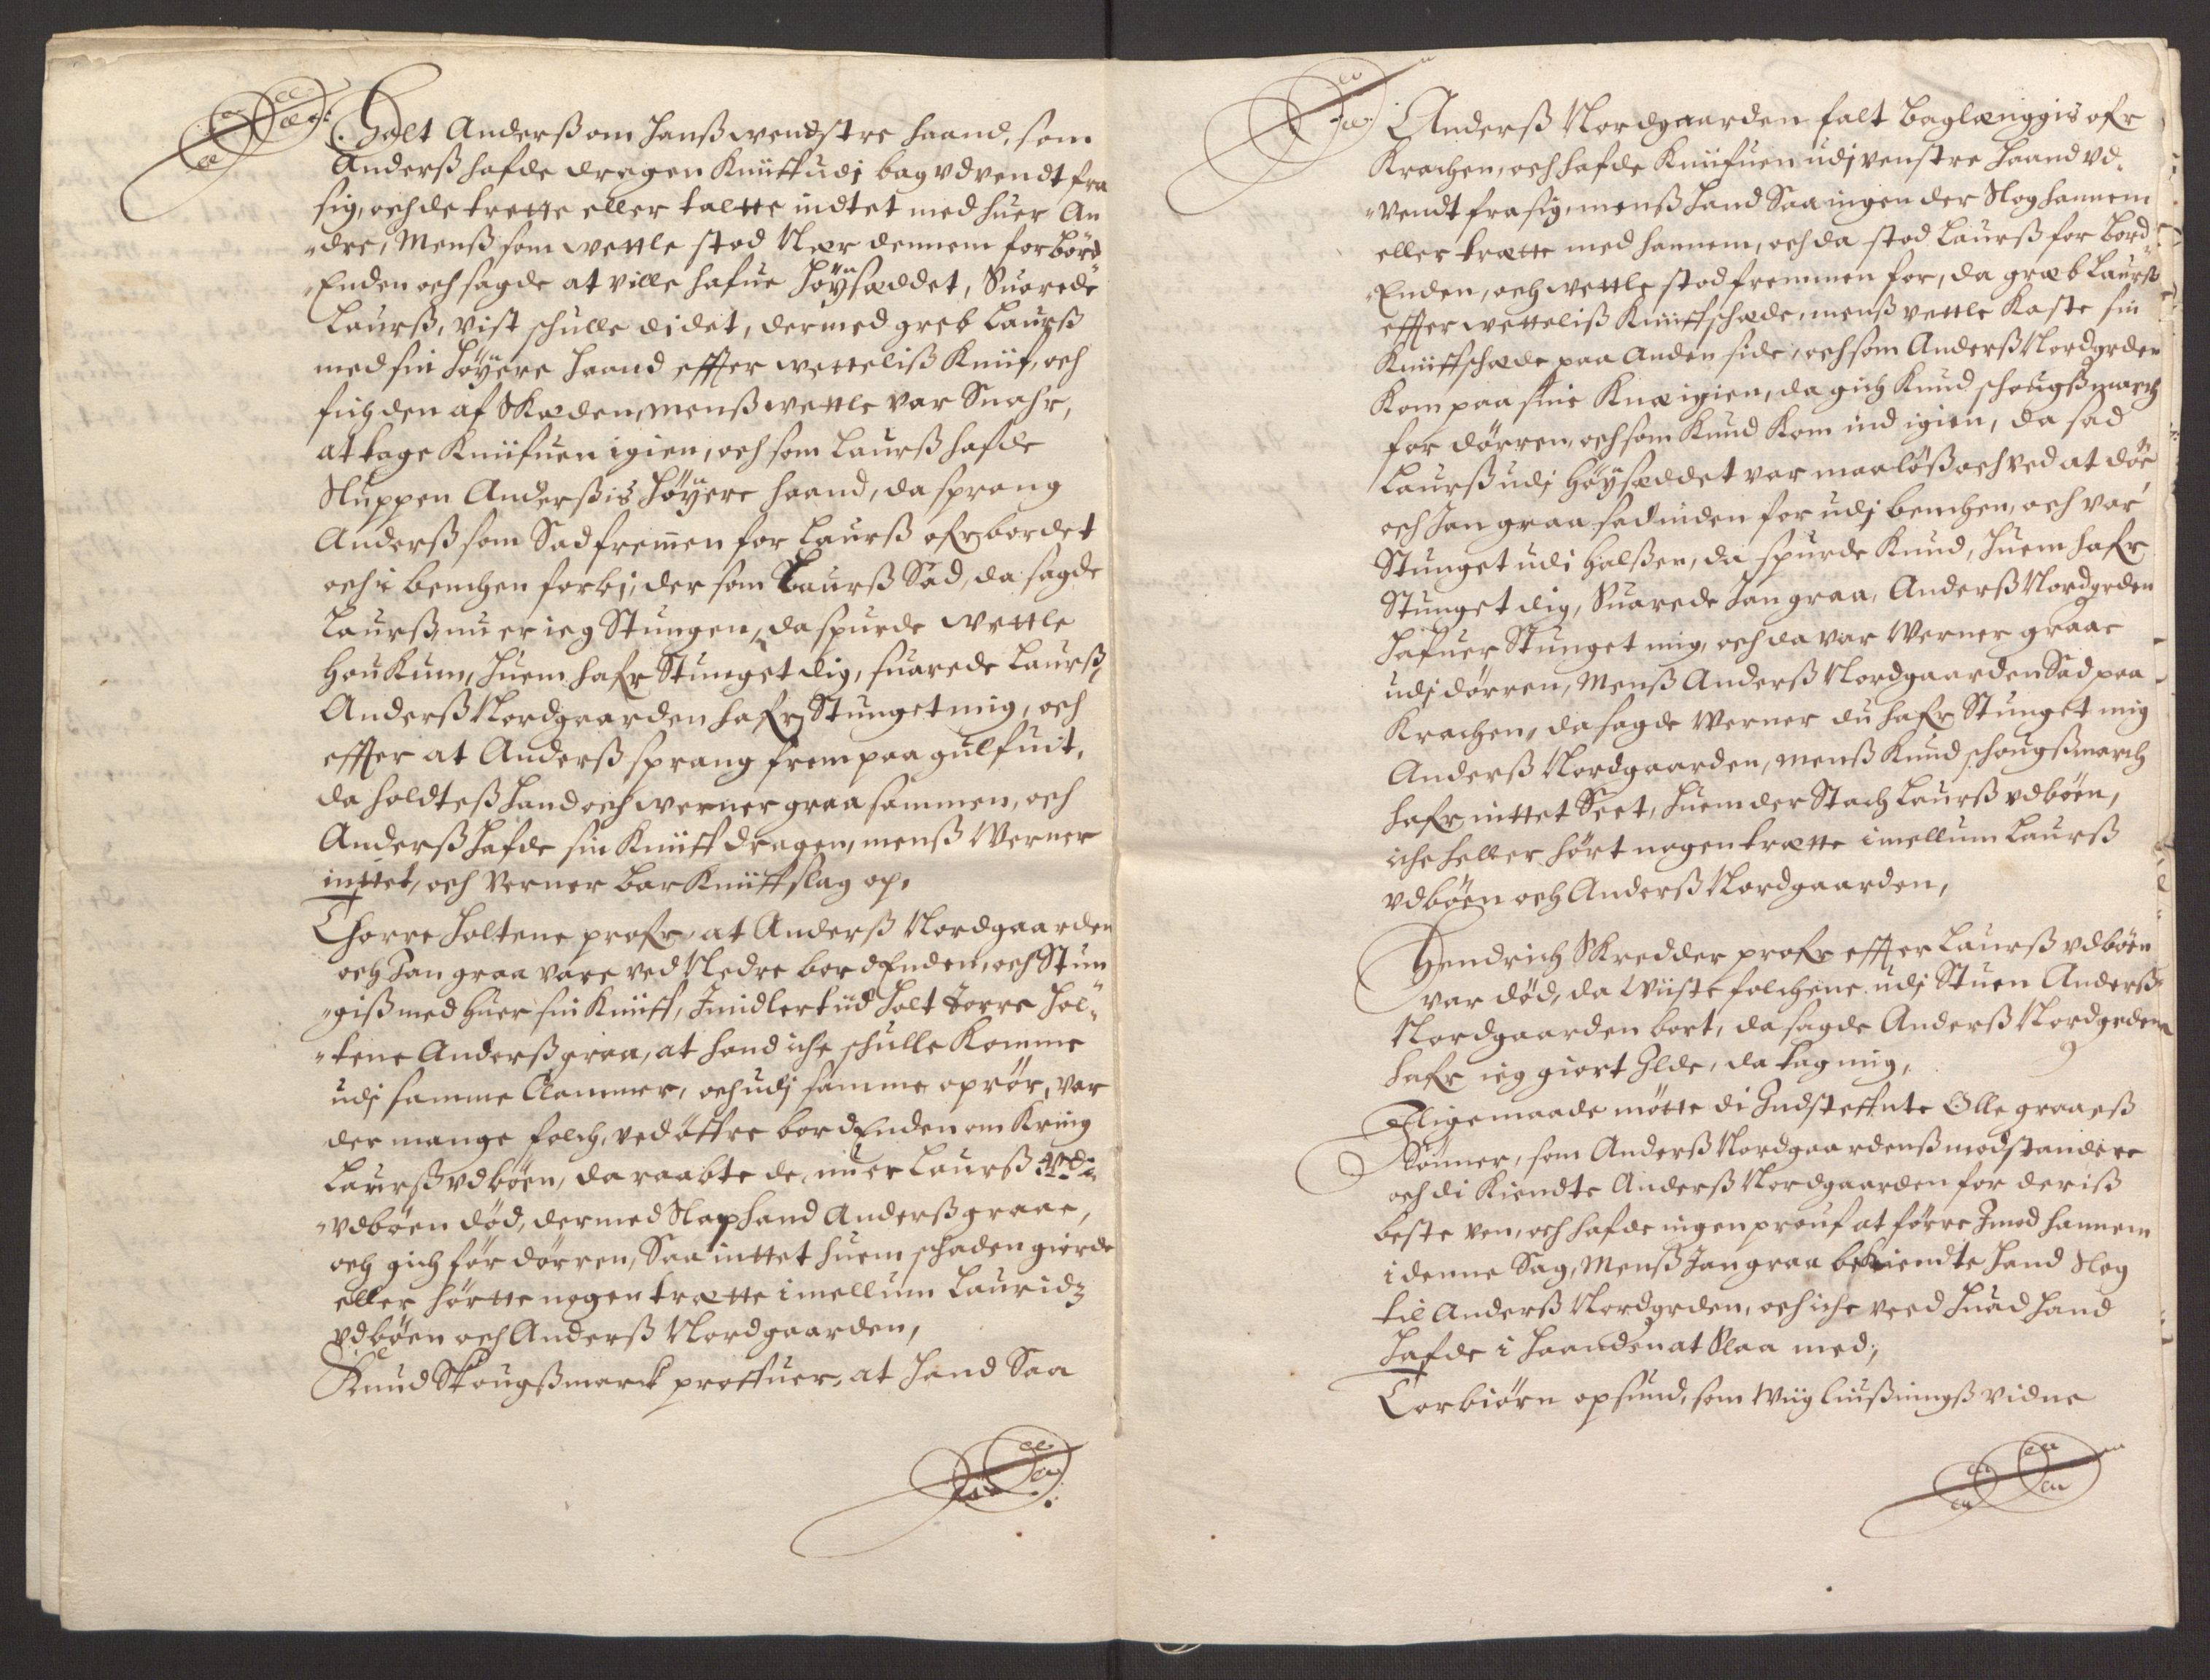 Holt Anderß om hanß wendstre haand, som
Anderß hafde dragen Kniiff udj bag vdvendt fra
sig, och de trette eller taltte indtet med huer An
"dre, Menß som wettle stod Nær dennem for bord
"Enden och sagde at ville hafue höysæddet, Suorede
Laurß, vist schulle di det, dermed greb Laurß
med sin höyere haand effter wetteliß Kniif, och
fich den af Skæden, menß wettle var Snahr,
at tage Kniifuen igien, och som Laurß hafde
Sluppen Anderßis höyere haand, da sprang
Anderß som Sad fremmen for Laurß ofr bordet
och i benchen forbj, der som Laurß Sad, da sagde
Laurß, nu er ieg Stungen, da spurde wettle
Houkum, huem hafr Stunget dig, suarede Laurß,
Anderß Nordgaarden hafr Stunget mig, och
effter at Anderß sprang frem paa gulfuit,
da holdteß hand och werner graa sammen, och
Anderß hafde sin Kniiff dragen, menß Werner
inttet, och Verner bar Kniiffslag op,
Thorre holtene profr, at Anderß Nordgaarden
och Jan graa vare ved Nedre bordEnden, och Stun
"giß med huer sin Kniiff, Imidlertiid holt Torre hol"
"tene Anderß graa, at hand iche schulle Komme
udj samme Clammer, och udj samme oprör, var
der mange folch, ved öffre bordEnden om Kring
Laurß vdböen, da raabte de, nu er Laurß
"vdböen död, dermed Slap hand Anderß graae,
och gich för dörren, Saa inttet huem schaden gierde
eller hörtte nogen trætte imellum Lauridz
vdböen och Anderß Nordgaarden,
Knud Skougßmarck proffuer, at hand Saa
Anderß Nordgaarden falt baglænggis ofr
Krachen, och hafde Kniifuen udj venstre haand vd"
"vendt fra sig, menß hand Saa ingen der Slog hannem
eller trætte med hannem, och da stod Laurß for bord
"Enden, och wettle stod fremmen for, da græb Laurß
effter wetteliß Kniiffschæde, menß vettle Kaste sin
Kniiffschæde paa Anden side, och som Anderß Nordgrden
Kom paa sine Knæ igien, da gich Knud schougßmarch
for dörren, och som Knud Kom ind igien, da sad
Laurß udj Höysæddet var maalöß och ved at döe
och Jan graa sad inden for udj benchen, och var
Stunget udi halßen, da spurde Knud, huem hafr
Stunget dig, Suarede Jan graa, Anderß Nordgrden
hafuer Stunget mig, och da var Werner graae
udj dörren, Menß Anderß Nordgaarden Sad paa
Krachen, da sagde Werner du hafr Stunget mig
Anderß Nordgaarden, menß Knud schougßmarch
hafr inttet Seet, huem der Stach Laurß vdböen,
iche heller hört nogen trætte imellum Laurß
vdböen och Anderß Nordgaarden,
Hendrich Skredder profr effter Laurß vdböen
var död, da Wiiste folchene udj Stuen Anderß
Nordgaarden bort, da sagde Anderß Nordgrden
hafr ieg giort Ilde, da tag mig,
Eligemaade mötte di Indsteffnte Olle graaeß
Sönner, som Anderß Nordgaardenß modstandere
och di Kiendte Anderß Nordgaarden for deriß
beste ven, och hafde ingen prouf at förre Imod hannem
i denne Sag, Menß Jan graa bekiendte hand Slog
til Anderß Nordgrden, och iche veed huad hand
hafde i haanden at Slaa med,
Torbiörn opsund, som Wiig liußningß vidne